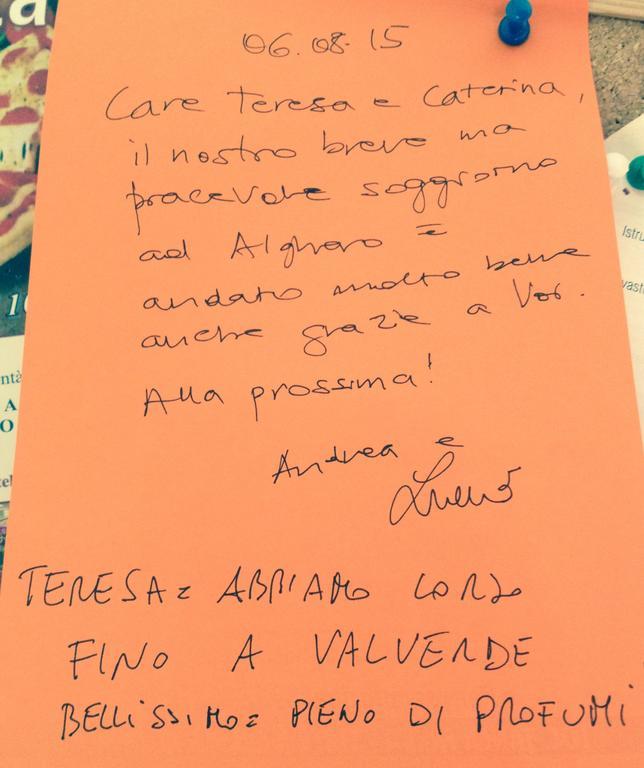 06.08.15
Care Teresa e Caterina,
il nostro breve ma
piacevole soggiorno
ad Alghero è
andato molto bene
anche grazie a Voi.
Alla prossima!
Andrea e
TERESA= ABBIAMO CORSO
FINO A VALVERDE
BELLISSIMO= PIENO DI PROFUMI
Istru
vast
ntà
A
O
tel